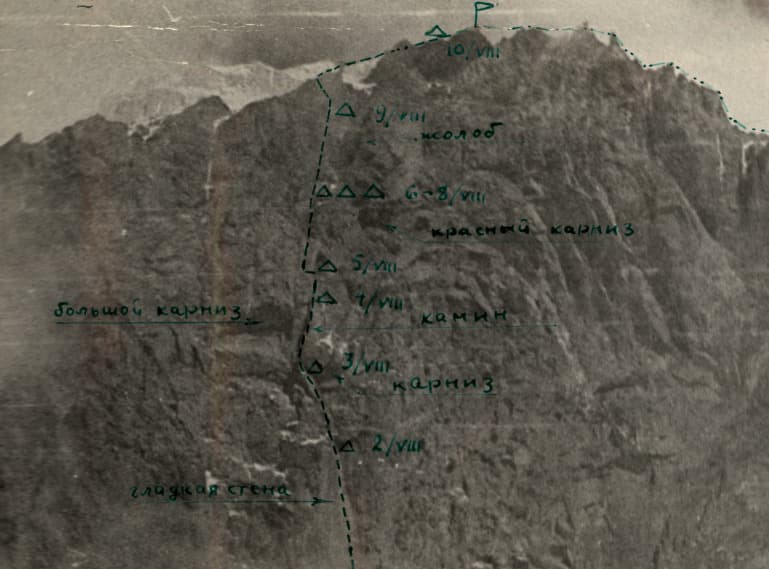 10/VIII
9/VIII
жолоб
6-8/VIII
красный карниз
5/VIII
4/VIII
большой карниз
камин
3/VIII
карниз
2/VIII
гладкая стена